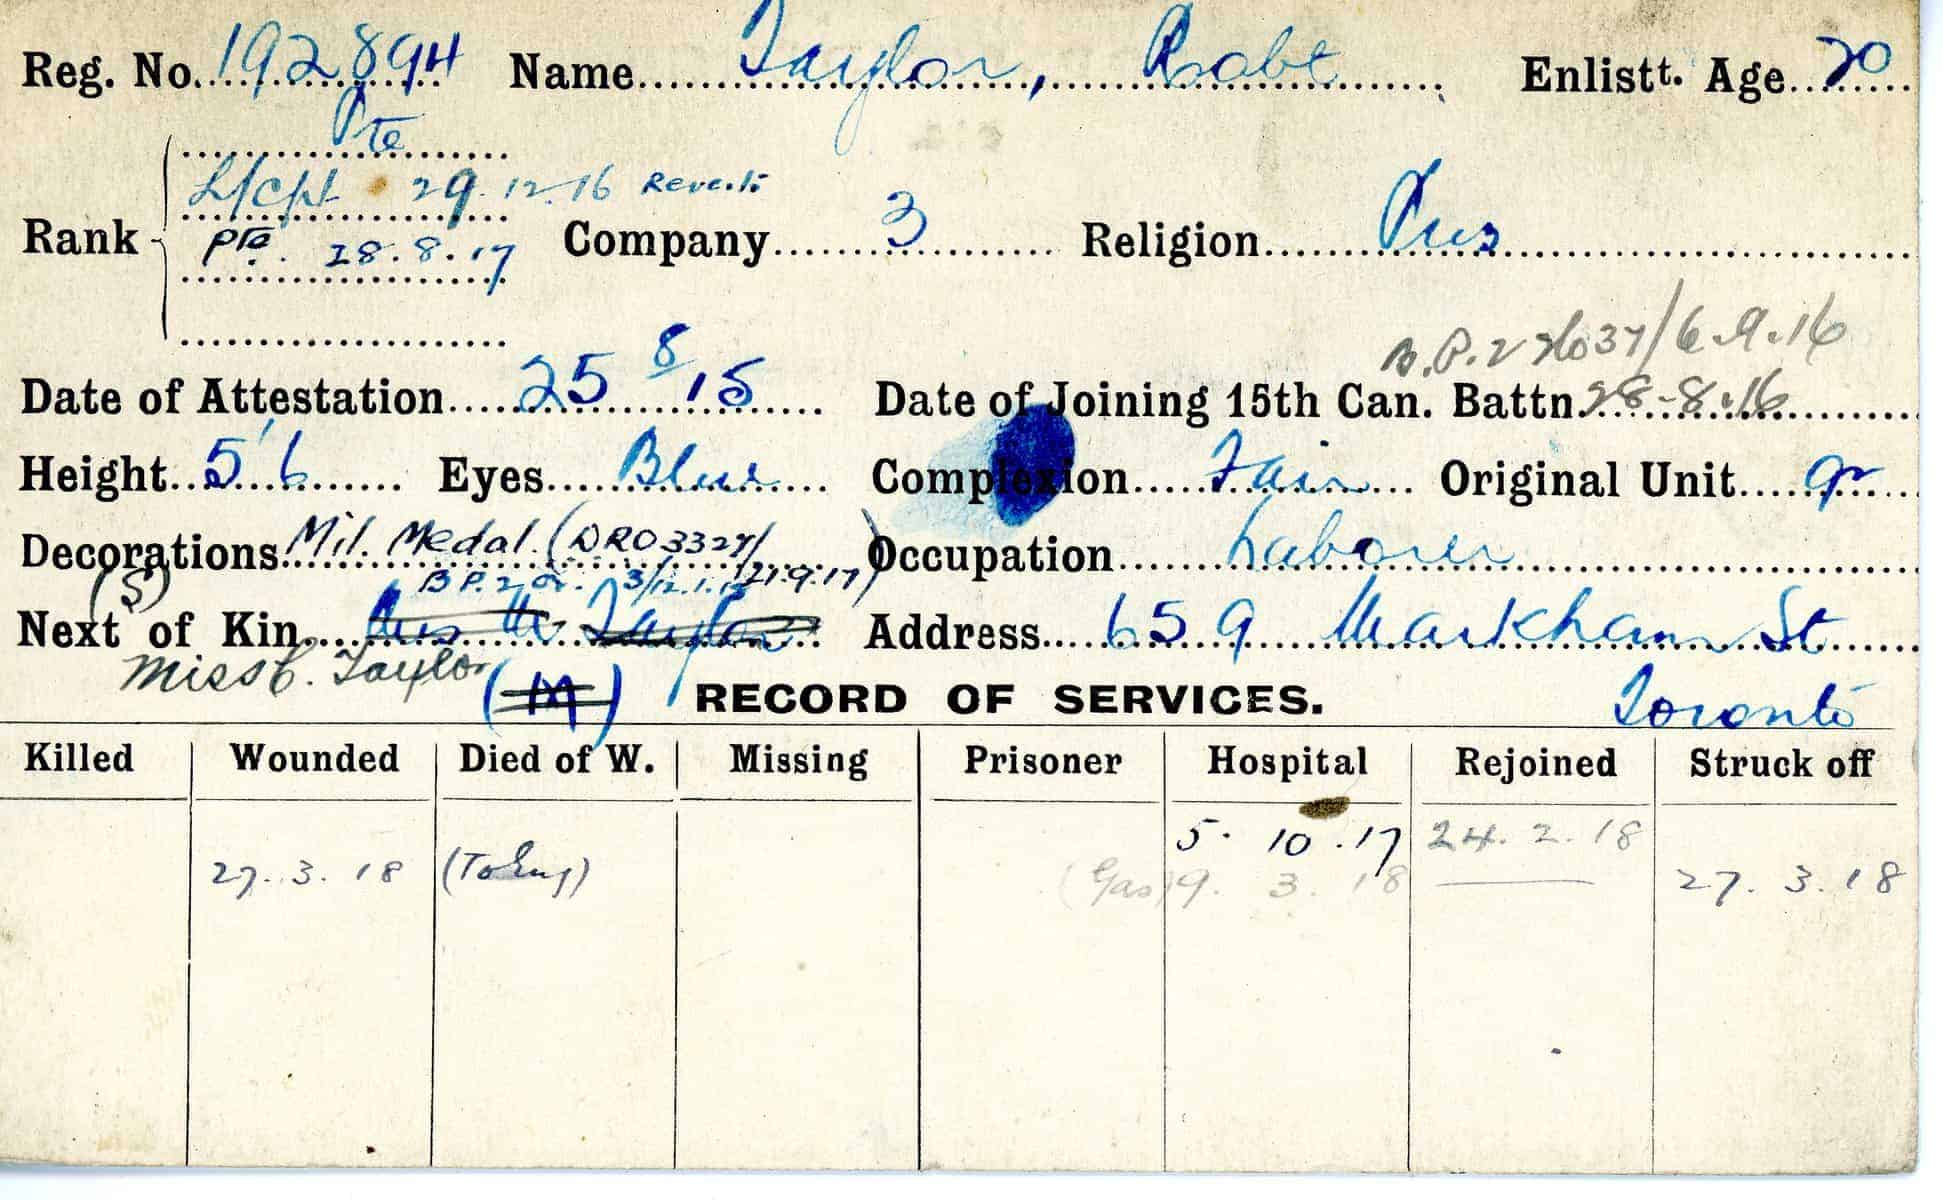 Reg. No. 192894 Name Taylor, Robt Enlistt. Age 20
Pte
L/Cpl 29.12.16 Reverts
Rank Pte. 28.8.17 Company 3 Religion Pres
B.P.2 37/6.9.16
Date of Attestation 25 8/15 Date of Joining 15th Can. Battn 28-8-16
Height 5'6 Eyes Blue Complexion Fair Original Unit 92
Decorations Mil. Medal. (DRO 3327/21.9.17) Occupation Laborer
(S) B P. 2 3/12.1.18
Next of Kin Mrs M Taylor Address 659 Markham St
Miss C. Taylor (M) RECORD OF SERVICES. Toronto
Killed Wounded Died of W. Missing Prisoner Hospital Rejoined Struck off
5. 10. 17 24. 2. 18
27. 3. 18 (To Eng) (Gas) 9. 3. 18 27. 3. 18